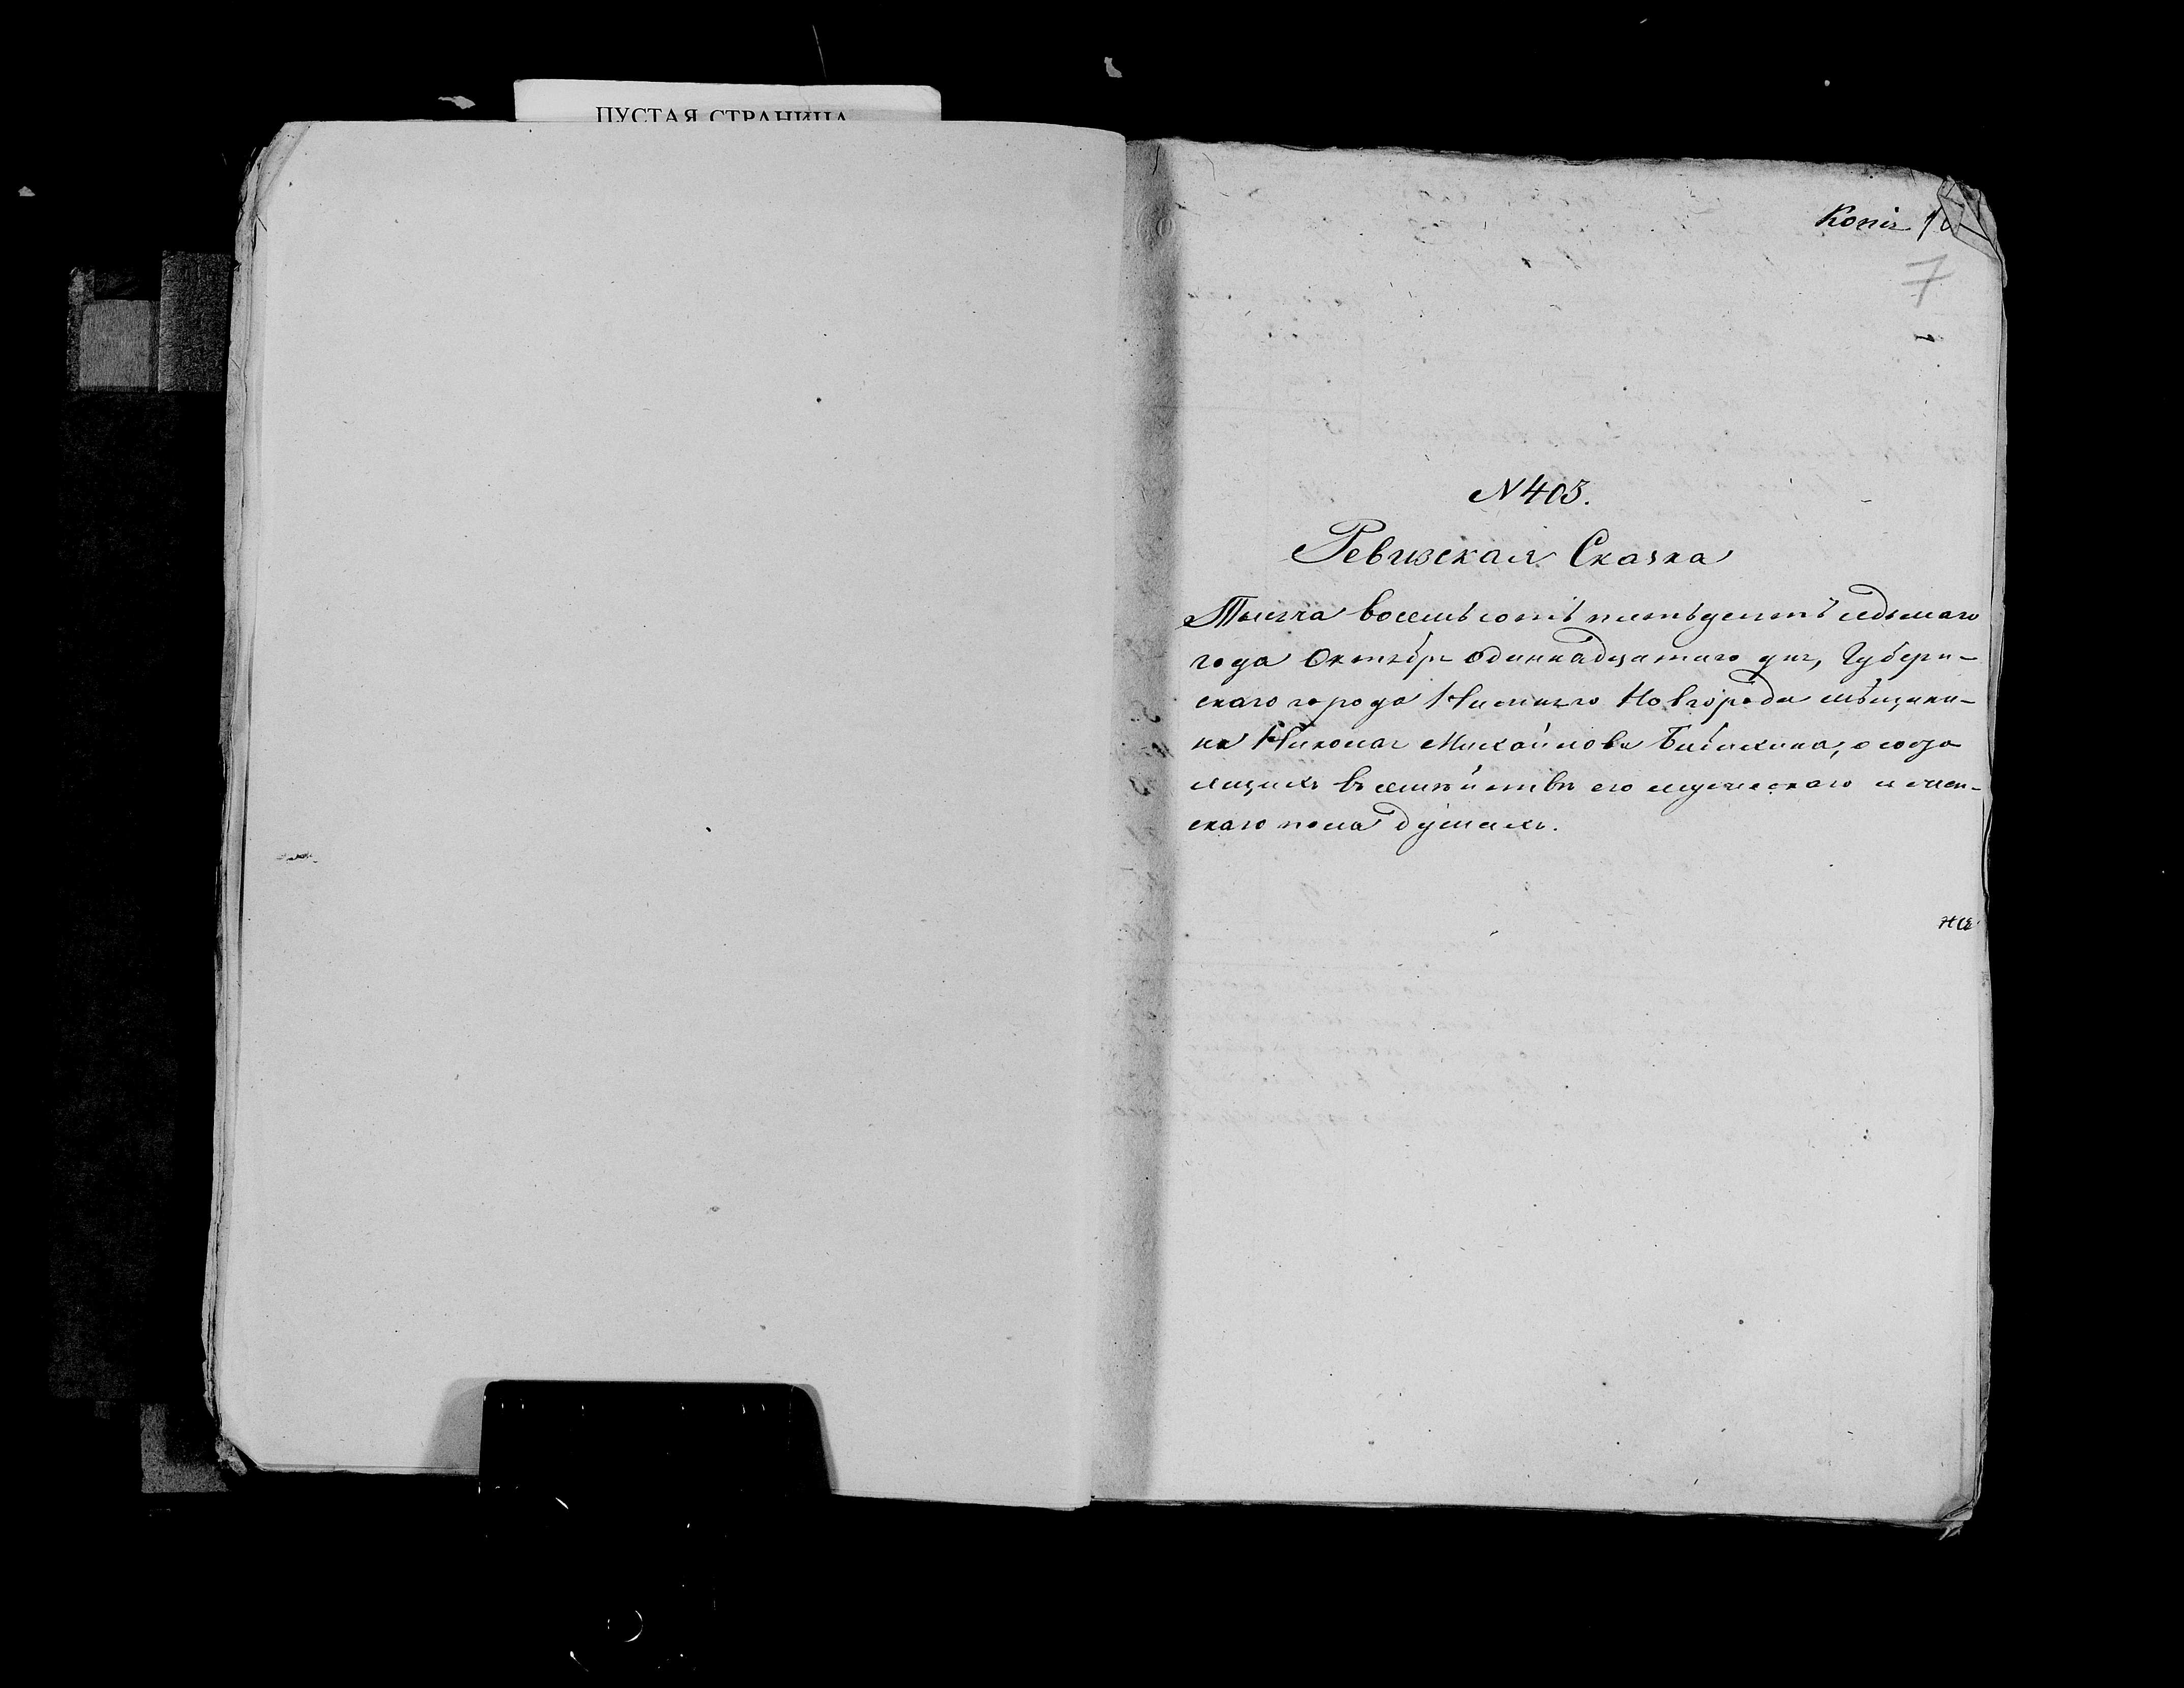 ПУСТАЯ СТРАНИЦА
Копія
7
N 403.
Ревизская Сказка
Тысяча восемьсотъ пятьдесятъ седьмаго
года Октября одиннадцатаго дня, Губерн-
скаго города Нижняго Новгорода мѣщани-
на Николая Михайлова о состо
ящихъ въ семѣйствѣ его мужескаго и жен-
скаго пола душахъ.